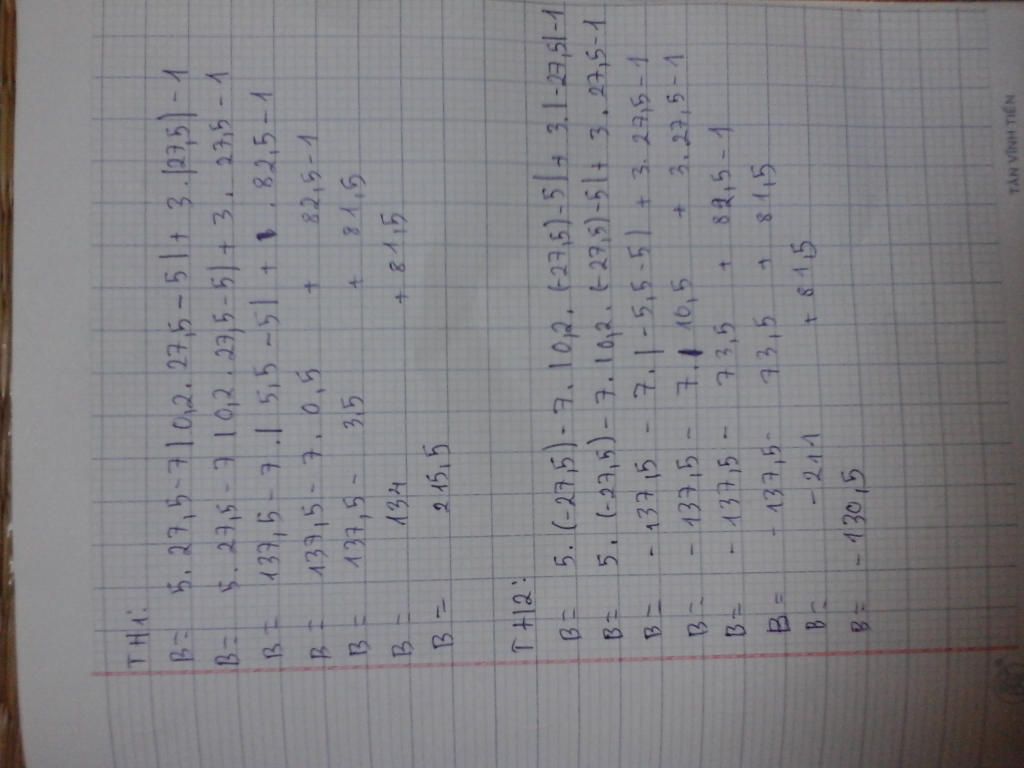 TH1:
B= 5. 27,5-7|0,2. 27,5-5|+ 3.|27,5|-1
B= 5. 27,5-7|0,2.27,5-5|+3. 27,5-1
B= 137,5-7.|5,5-5|+ . 82,5-1
B= 137,5-7. 0,5 + 82,5-1
B= 137,5- 3,5 + 81,5
B= 134 + 81,5
B= 215,5
TH2:
B= 5.(-27,5)-7.|0,2.(-27,5)-5|+3.|-27,5|-1
B= 5.(-27,5)-7.|0,2.(-27,5)-5|+3.27,5-1
B= -137,5 - 7.|-5,5-5| + 3.27,5-1
B= -137,5- 7. 10,5 + 3.27,5-1
B= -137,5- 73,5 + 82,5-1
B= -137,5- 73,5 + 81,5
B= -211 + 81,5
B= -130,5
TAN VĨNH TIẾN